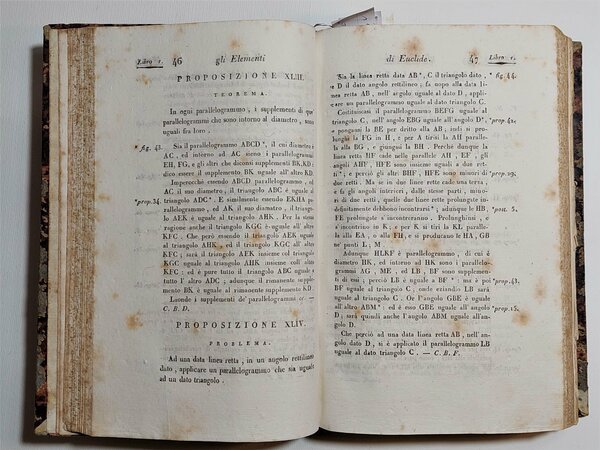 Libro I. 46 gli Elementi
PROPOSIZIONE XLIII.
TEOREMA.
In ogni parallelogrammo, i supplementi di que'
parallelogrammi che sono intorno al diametro, sono
uguali fra loro.
* fig. 43. Sia il parallelogrammo ABCD *, il cui diametro
AC, ed intorno ad AC sieno i parallelogrammi
EH, FG, e gli altri che diconsi supplementi BK, KD:
dico essere il supplemento BK uguale all'altro KD.
Imperocchè essendo ABCD parallelogrammo, ed
AC il suo diametro, il triangolo ABC è uguale al
* prop. 34. triangolo ADC *. E similmente essendo EKHA pa-
rallelogrammo, ed AK il suo diametro, il trian-
golo AEK è uguale al triangolo AHK. Per la stessa
ragione anche il triangolo KGC è uguale all'altro
KFC. Che però essendo il triangolo AEK uguale
al triangolo AHK, ed il triangolo KGC all'altro
KFC; sarà il triangolo AEK insieme col triangolo
KGC uguale al triangolo AHK insieme coll'altro
KFC: ed è pure tutto il triangolo ABC uguale a
tutto l'altro ADC; adunque il rimanente supple-
mento BK è uguale al rimanente supplemento KD.
Laonde i supplementi de' parallelogrammi ec. —
C. B. D.
PROPOSIZIONE XLIV.
PROBLEMA.
Ad una data linea retta, in un angolo rettilineo
dato, applicare un parallelogrammo che sia uguale
ad un dato triangolo.
di Euclide. 47 Libro I.
Sia la linea retta data AB *, C il triangolo dato, * fig. 44.
e D il dato angolo rettilineo; fa uopo alla data li-
nea retta AB, nell'angolo uguale al dato D, appli-
care un parallelogrammo uguale al dato triangolo C.
Costituiscasi il parallelogrammo BEFG uguale al
triangolo C, nell'angolo EBG uguale all'angolo D *, * prop. 42.
e pongasi la BE per diritto alla AB, indi si pro-
lunghi la FG in H, e per A tirisi la AH paralle-
la alla BG, e giungasi la BH. Perchè dunque la
linea retta HF cade nelle parallele AH, EF, gli
angoli AHF, HFE sono insieme uguali a due ret-
ti *; e perciò gli altri BHF, HFE sono minori di * prop. 29.
due retti. Ma se in due linee rette cade una terza,
e fa gli angoli interiori, dalle stesse parti, mino-
ri di due retti, quelle due linee rette prolungate in-
definitamente debbono incontrarsi *; adunque le HB, * post. 5.
FE prolungate s'incontreranno. Prolunghinsi, e
s'incontrino in K; e per K si tiri la KL paralle-
la alla EA, o alla FH, e si producano le HA, GB
ne' punti L, M
Adunque HLKF è parallelogrammo, di cui è
diametro HK, ed intorno ad HK sono i parallelo-
grammi AG, ME, ed LB, BF sono supplemen-
ti di cui; perciò LB è uguale a BF *: ma è poi * prop. 43.
BF uguale al triangolo C, onde eziandio LB sarà
uguale al triangolo C. Or l'angolo GBE è uguale
all'altro ABM *: ed è esso GBE uguale all'angolo * prop. 15.
D; sarà quindi anche l'angolo ABM uguale all'an-
golo D.
Che perciò ad una data linea retta AB, nell'an-
golo dato D, si è applicato il parallelogrammo LB
uguale al dato triangolo C. — C. B. F.